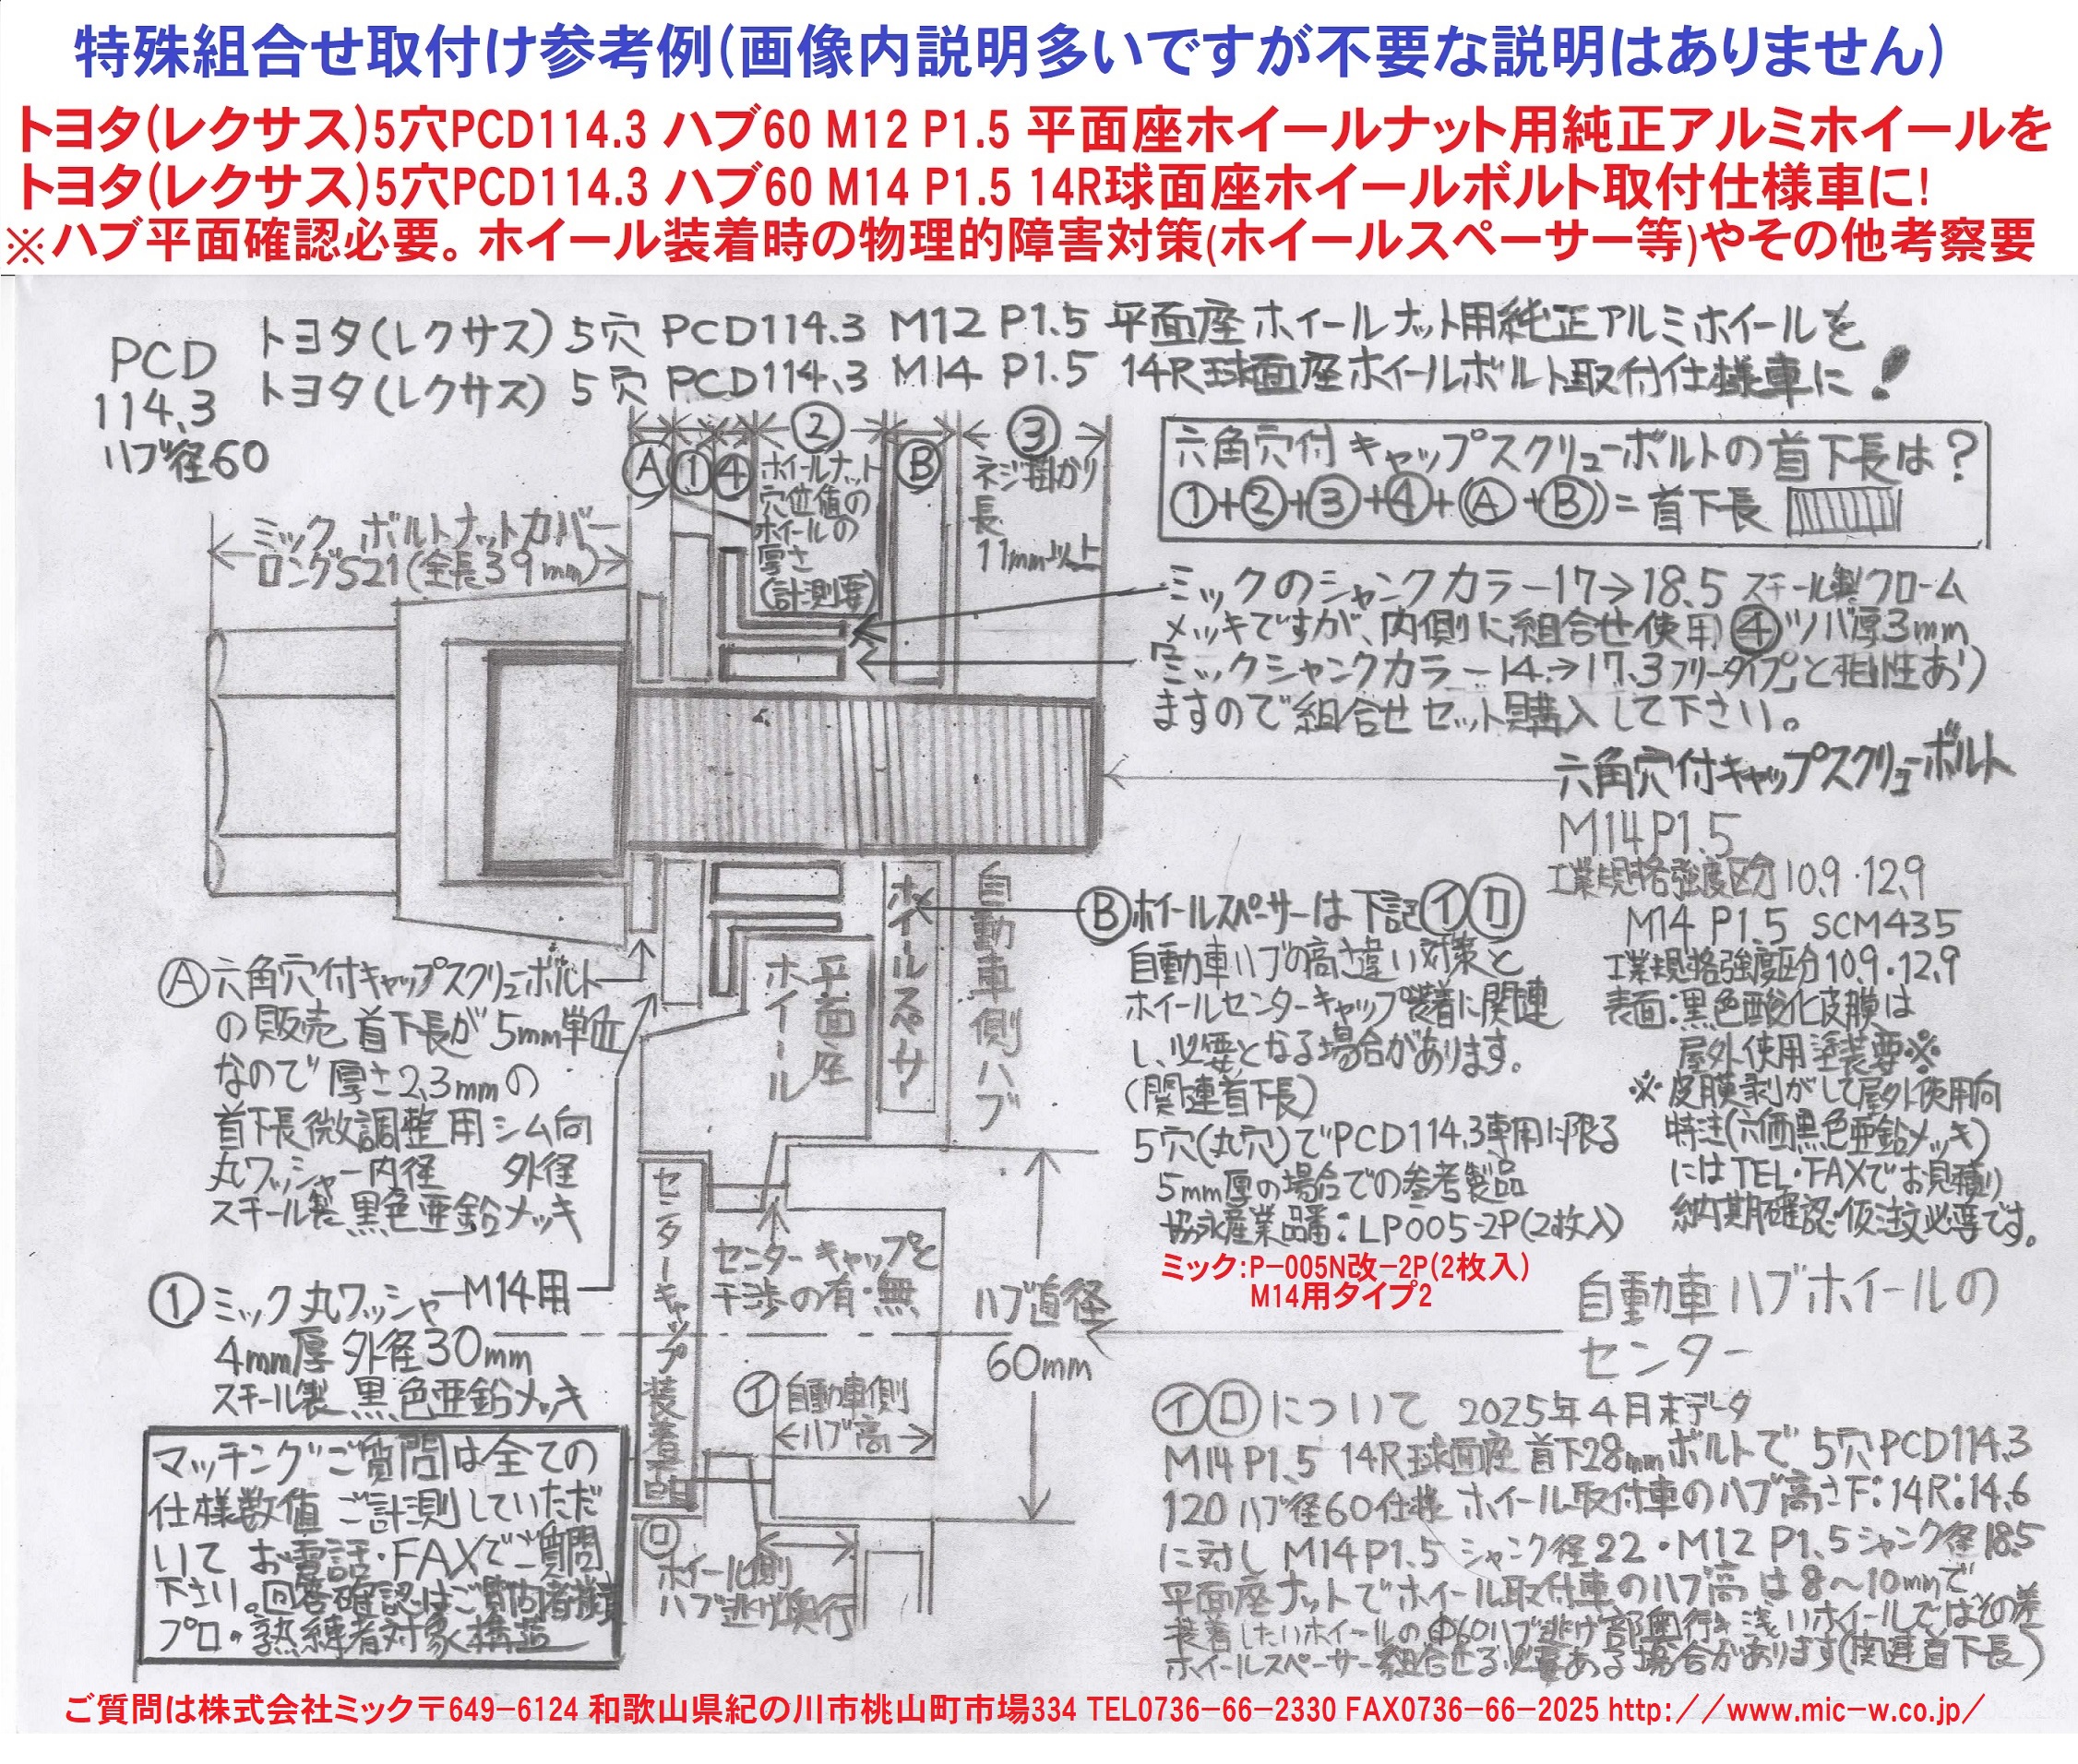 特殊組合せ取付け参考例(画像内説明多いですが不要な説明はありません)
トヨタ(レクサス)5穴PCD114.3 ハブ60 M12 P1.5 平面座ホイールナット用純正アルミホイールを
トヨタ(レクサス)5穴PCD114.3 ハブ60 M14 P1.5 14R球面座ホイールボルト取付仕様車に!
※ハブ平面確認必要。ホイール装着時の物理的障害対策(ホイールスペーサー等)やその他考察要
PCD
114.3
ハブ径60
トヨタ(レクサス) 5穴 PCD114.3 M12 P1.5 平面座ホイールナット用純正アルミホイールを
トヨタ(レクサス) 5穴 PCD114.3 M14 P1.5 14R球面座ホイールボルト取付仕様車に!
Ⓐ ① ④
②
ホイールナット
穴位値の
ホイールの
厚さ
(計測要)
Ⓑ
③
ネジ掛かり
長
11mm以上
六角穴付キャップスクリューボルトの首下長は?
①+②+③+④+(Ⓐ+Ⓑ)=首下長
ミック ボルトナットカバー
ロングS21(全長39mm)
ミックのシャンクカラー17→18.5 スチール製クローム
メッキですが、内側に組合せ使用④ツバ厚3mm
「ミックシャンクカラー14→17.3フリータイプ」と相性あり
ますので組合せセット購入して下さい。
六角穴付キャップスクリューボルト
M14P1.5
工業規格強度区分10.9・12.9
M14 P1.5 SCM435
工業規格強度区分10.9・12.9
表面:黒色酸化皮膜は
屋外使用塗装要※
※皮膜剥がして屋外使用向
特注(六価黒色亜鉛メッキ)
にはTEL・FAXでお見積り
納期確認・仮注文必要です。
Ⓐ六角穴付キャップスクリューボルト
の販売 首下長が5mm単位
なので厚さ2.3mmの
首下長微調整用シム向
丸ワッシャー内径 外径
スチール製 黒色亜鉛メッキ
①ミック丸ワッシャーM14用
4mm厚 外径30mm
スチール製 黒色亜鉛メッキ
平面座
ホイール
ホイールスペーサー
自動車側ハブ
Ⓑホイールスペーサーは下記㋑㋺
自動車ハブの高さ違い対策と
ホイールセンターキャップ装着に関連
し、必要となる場合があります。
(関連首下長)
5穴(丸穴)でPCD114.3専用に限る
5mm厚の場合での参考製品
協永産業品番:LP005-2P(2枚入)
ミック:P-005N改-2P(2枚入)
M14用タイプ2
センターキャップ装着部
センターキャップと
干渉の有・無
ハブ直径
60mm
自動車ハブホイールの
センター
㋑自動車側
ハブ高
㋺
ホイール側
ハブ逃げ奥行
マッチングご質問は全ての
仕様数値ご計測していただ
いて お電話・FAXでご質問
下さい。回答確認はご質問者様責
プロ・熟練者対象構造
㋑㋺について 2025年4月末データ
M14P1.5 14R球面座 首下28mmボルトで 5穴PCD114.3
120ハブ径60仕様 ホイール取付車のハブ高さF:14R:14.6
に対し M14P1.5 シャンク径22・M12 P1.5シャンク径18.5
平面座ナットでホイール取付車のハブ高は8〜10mmで
装着したいホイールのΦ60ハブ逃げ部奥行き浅いホイールではその差
ホイールスペーサー組合せる必要ある場合があります(関連首下長)
ご質問は株式会社ミック〒649-6124 和歌山県紀の川市桃山町市場334 TEL0736-66-2330 FAX0736-66-2025 http://www.mic-w.co.jp/